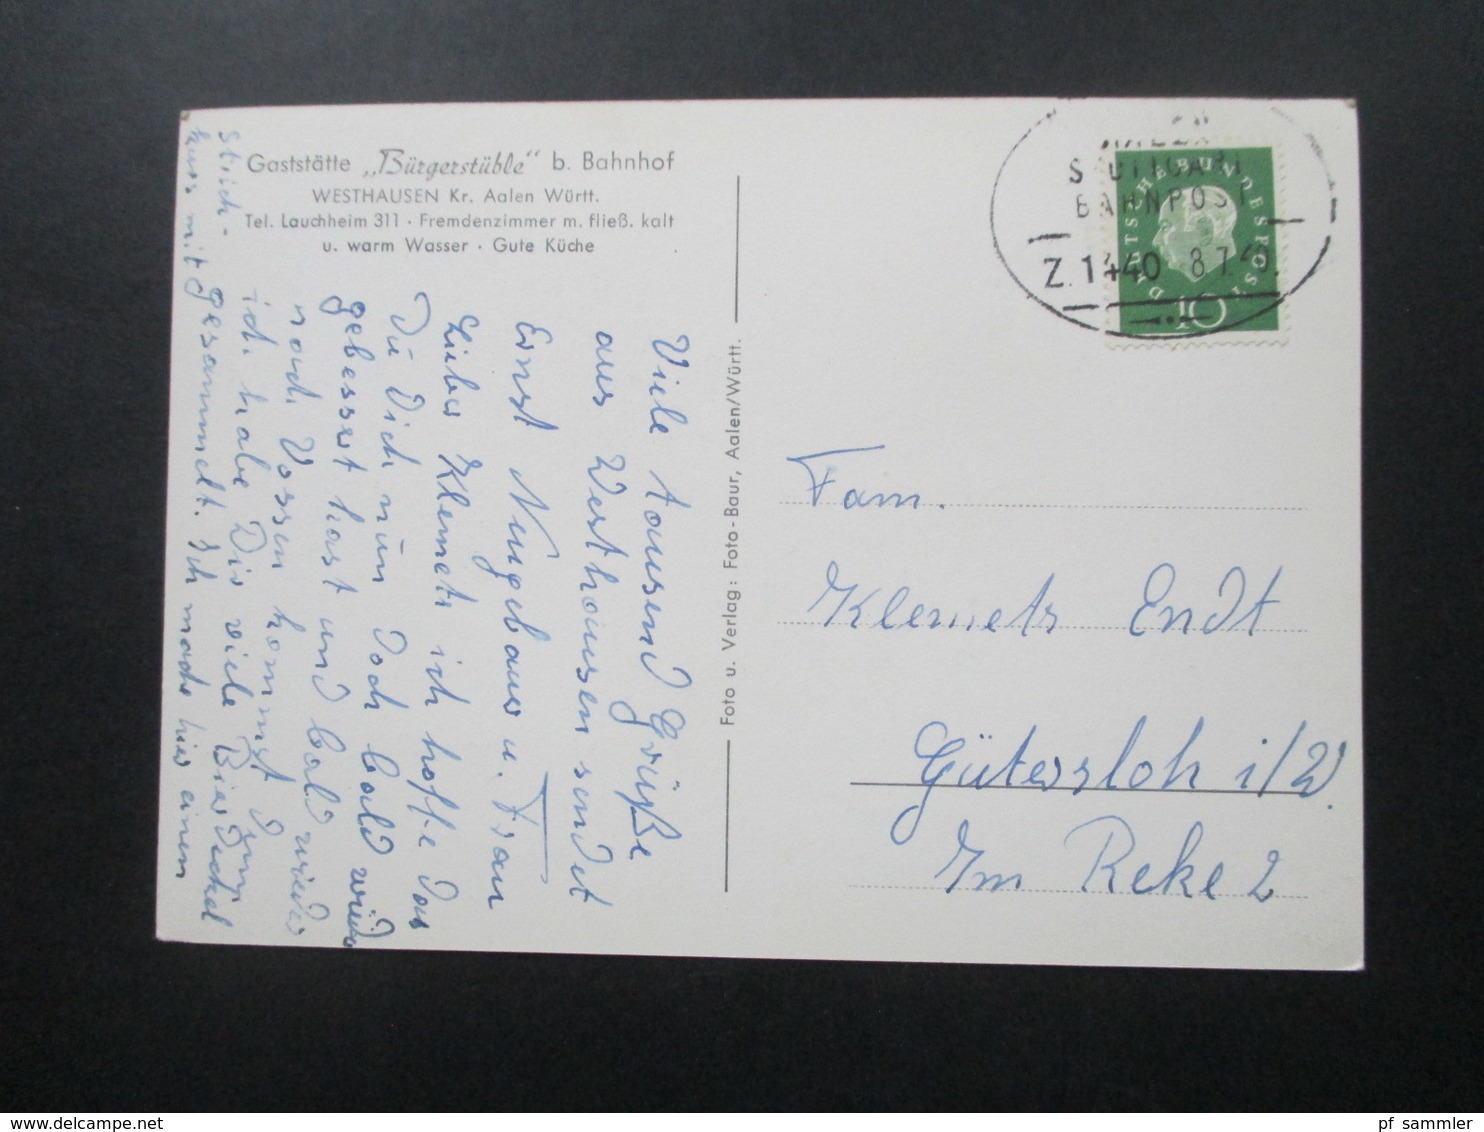 Gaststätte „Bürgerstüble" b. Bahnhof
WESTHAUSEN Kr. Aalen Württ.
Tel. Lauchheim 311 · Fremdenzimmer m. fließ. kalt
u. warm Wasser · Gute Küche
Viele tausend Grüße
aus Westhausen sendet
Ernst Neugebauer u. Frau
Lieber Klemets ich hoffe das
Du Dich nun doch bald wieder
gebessert hast und bald wieder
nach Vossen kommst denn
ich habe Dir viele Bierdeckel
gesammelt. Ich mache hier einen
kurs mit
Foto u. Verlag: Foto-Baur, Aalen/Württ.
STUTTGART
BAHNPOST
Z.1440 8.7.
DEUTSCHE BUNDESPOST
10
Fam.
Klemets Endt
Gütersloh i/W.
Im Reke 2
pf_sammler